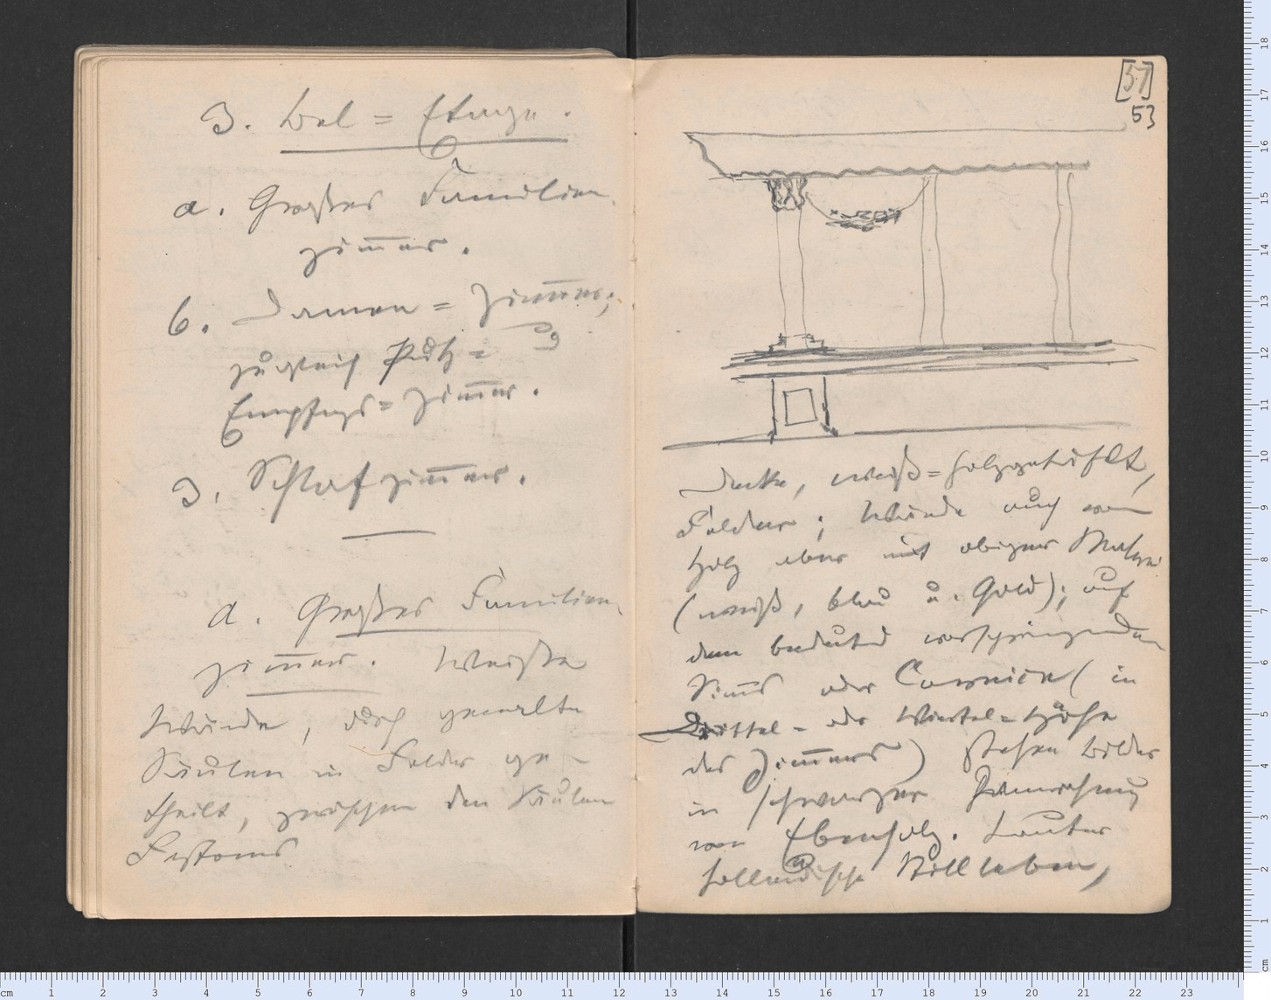 3. Bel=Etage.
a. Großes Familien-
zim̅er.
b. Damen=Zim̅er;
zugleich Putz=
Empfgs=Zim̅er.
3. Schlafzim̅er.
a. Großes Familien-
zim̅er. Weiße
Wände, durch gemalte
Säulen in Felder ge-
theilt, zwischen den Säulen
Festons.
[57]
53
Decke, weiß=holzgetäfelt,
Felder; Wände auch von
Holz aber mit obiger Malerei
(weiß, blau u. Gold); auf
dem bedeutend vorspringenden
Sims oder Corniche (in
Drittel- oder Viertel=Höhe
des Zim̅ers) stehen Bilder
in schwarzer Umrahmung
von Ebenholz. Lauter
holländische Stillleben,